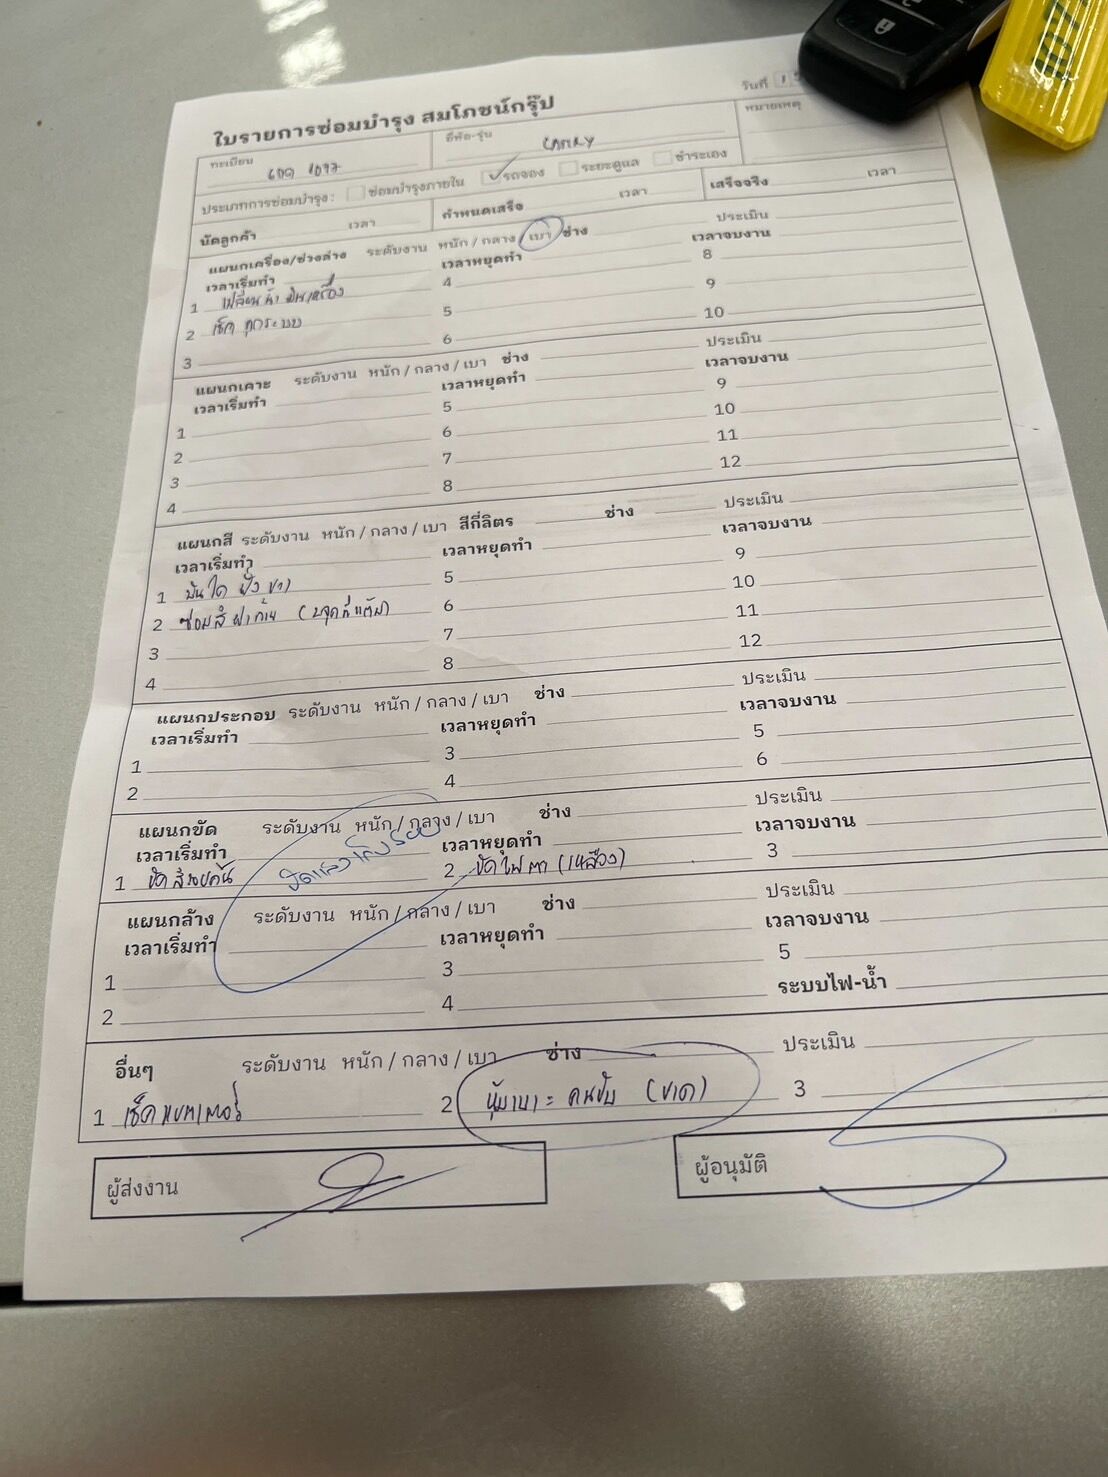 ใบรายการซ่อมบำรุง สมโภชน์กรุ๊ป
วันที่ 1
ทะเบียน
ยี่ห้อ-รุ่น CAMRY
หมายเหตุ
ประเภทการซ่อมบำรุง: ซ่อมบำรุงภายใน ✓ รถจอง ระยะดูแล ชำระเอง
นัดลูกค้า เวลา กำหนดเสร็จ เวลา เสร็จจริง เวลา
แผนกเครื่อง/ช่วงล่าง ระดับงาน หนัก / กลาง / เบา ช่าง ประเมิน
เวลาเริ่มทำ เวลาหยุดทำ เวลาจบงาน
1 เปลี่ยนน้ำมันเครื่อง 4 8
2 เช็คทุกระบบ 5 9
3 6 10
แผนกเคาะ ระดับงาน หนัก / กลาง / เบา ช่าง ประเมิน
เวลาเริ่มทำ เวลาหยุดทำ เวลาจบงาน
1 5 9
2 6 10
3 7 11
4 8 12
แผนกสี ระดับงาน หนัก / กลาง / เบา สีกี่ลิตร ช่าง ประเมิน
เวลาเริ่มทำ เวลาหยุดทำ เวลาจบงาน
1 บันได 5 9
2 ซ่อมสี 6 10
3 7 11
4 8 12
แผนกประกอบ ระดับงาน หนัก / กลาง / เบา ช่าง ประเมิน
เวลาเริ่มทำ เวลาหยุดทำ เวลาจบงาน
1 3 5
2 4 6
แผนกขัด ระดับงาน หนัก / กลาง / เบา ช่าง ประเมิน
เวลาเริ่มทำ เวลาหยุดทำ เวลาจบงาน
1 ขัดสีรอบคัน 2 ขัดไฟตา (เหลือง) 3
แผนกล้าง ระดับงาน หนัก / กลาง / เบา ช่าง ประเมิน
เวลาเริ่มทำ เวลาหยุดทำ เวลาจบงาน
1 3 5
2 4 ระบบไฟ-น้ำ
อื่นๆ ระดับงาน หนัก / กลาง / เบา ช่าง ประเมิน
1 เช็คแบตเตอรี่ 2 หุ้มเบาะ คนขับ (ขาด) 3
ผู้ส่งงาน
ผู้อนุมัติ